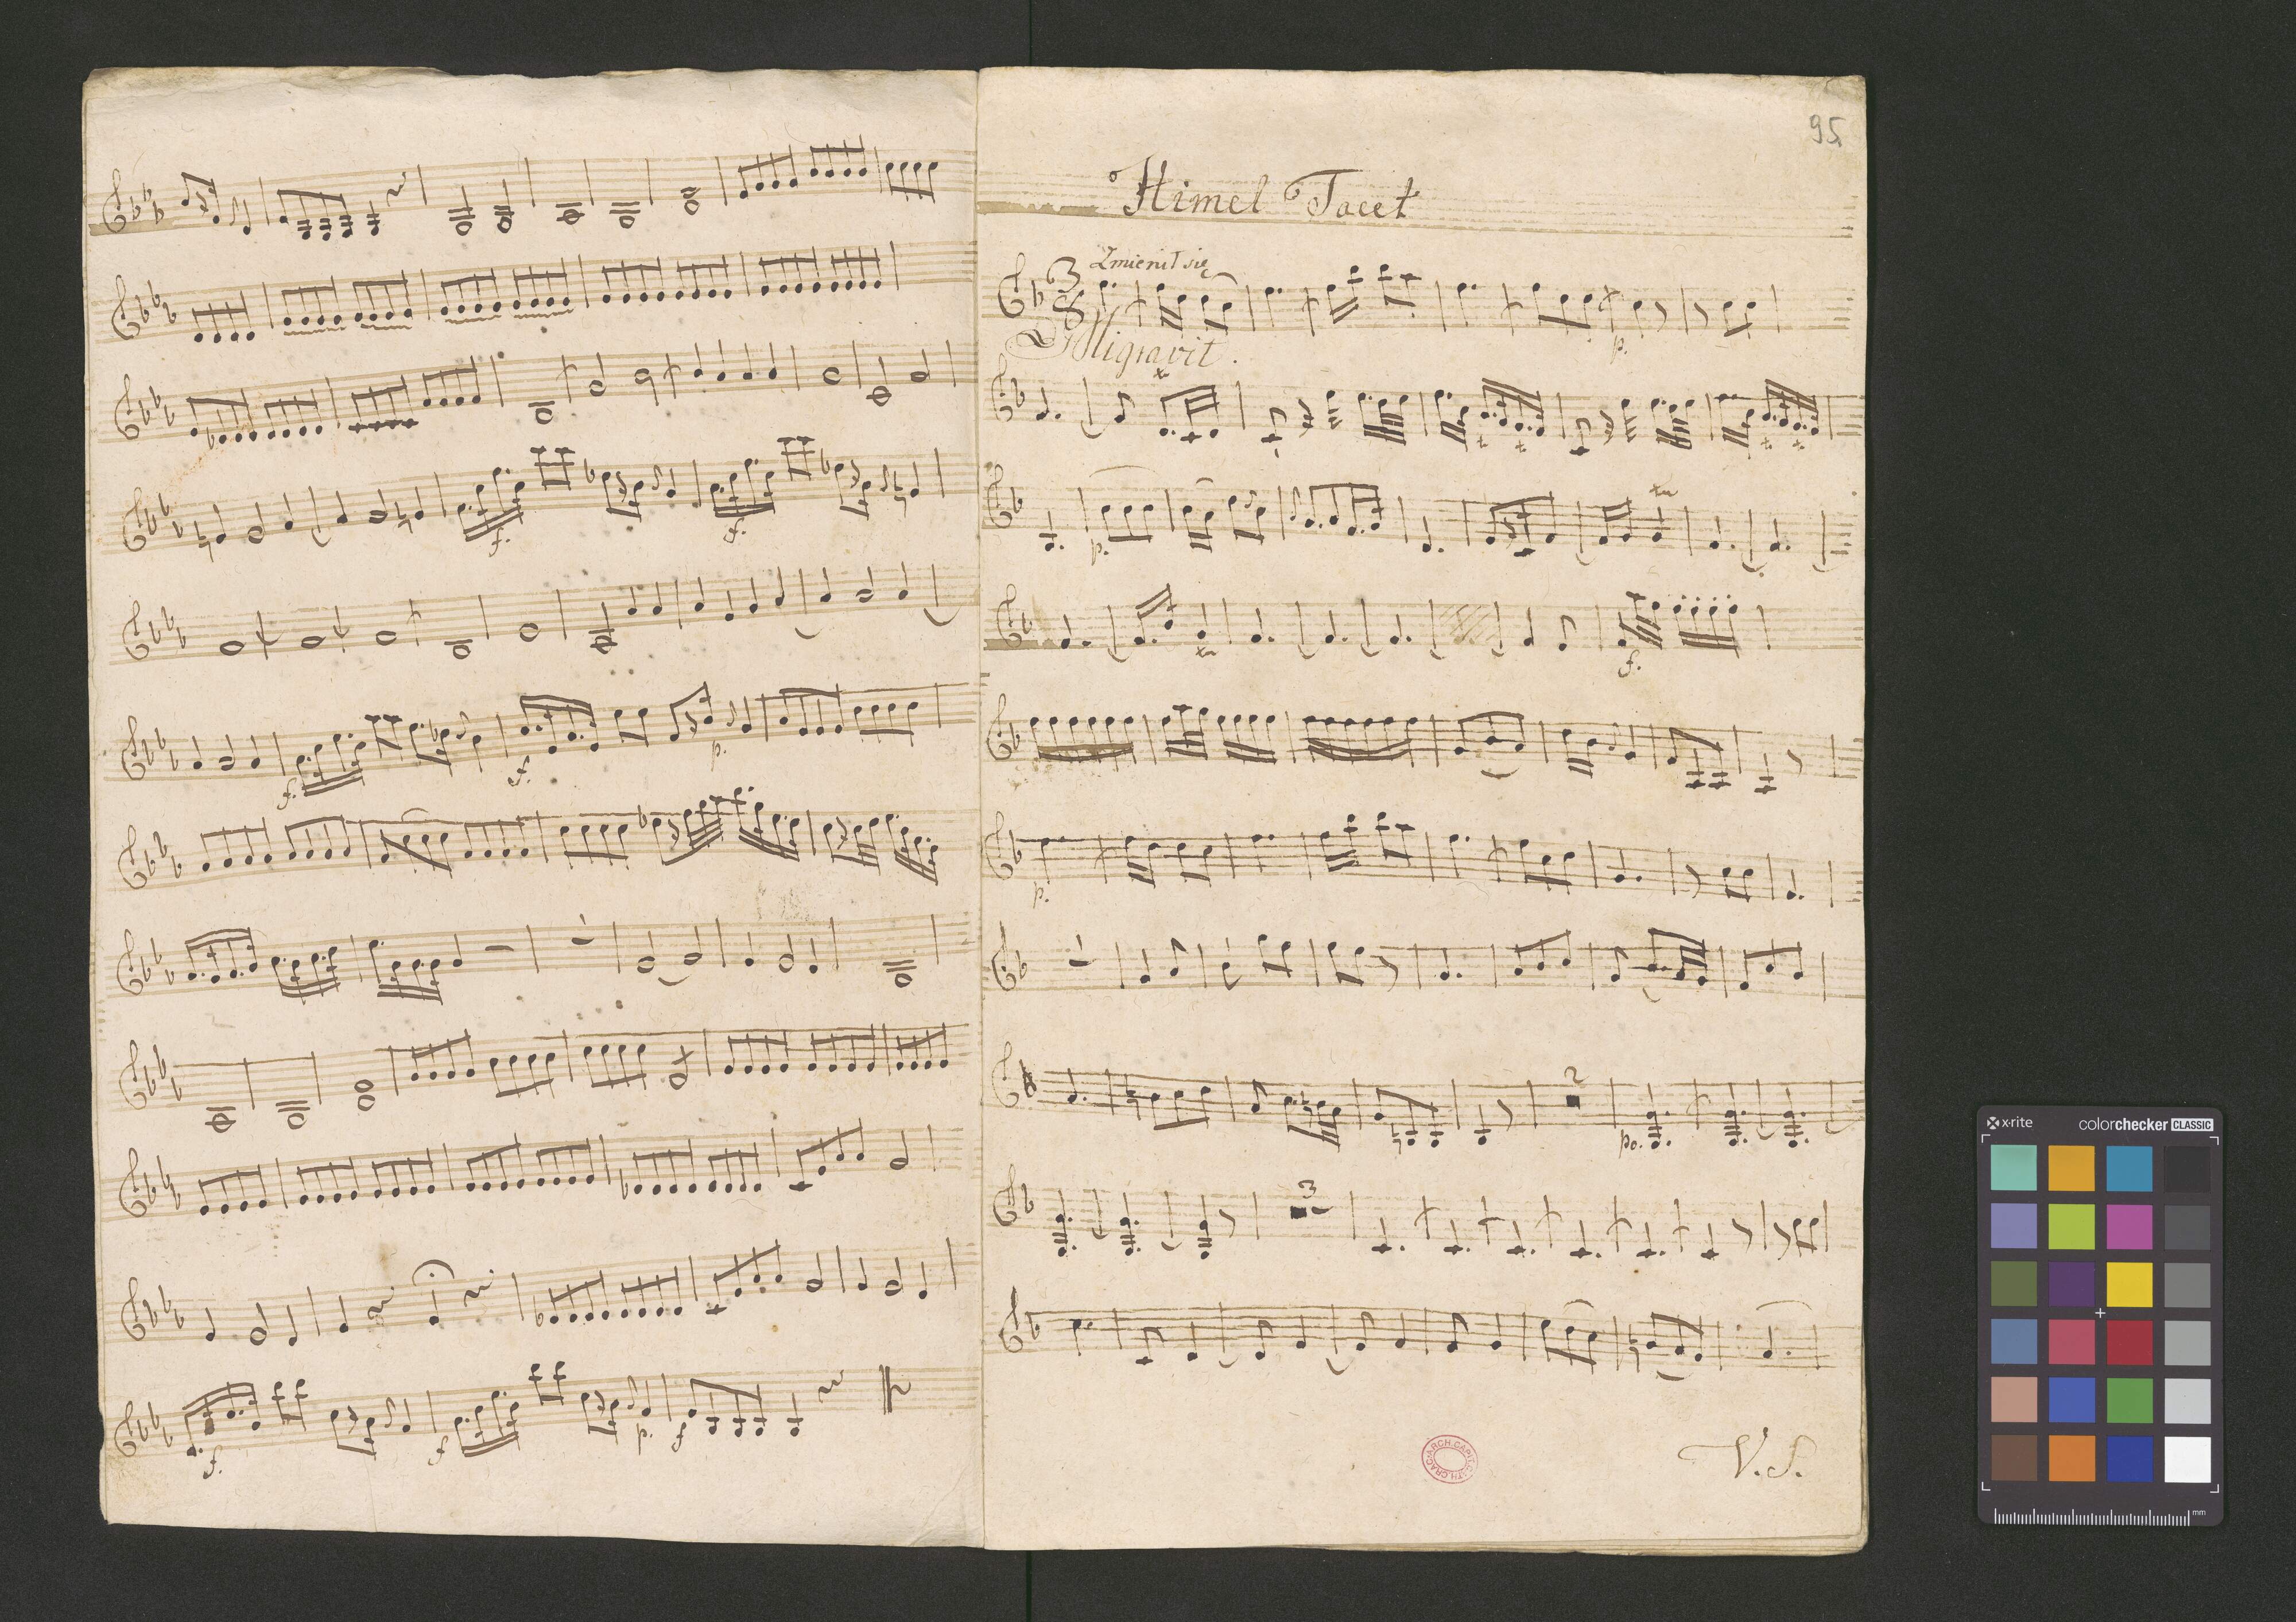 f. f.
f. f. p.
f. f. p. f
95
Himel Tacet
3
8
Zmienił się
Migravit.
p.
tr
p.
tr
tr
f.
p.
2
po.
3
V. S.
ARCH. CAPIT. CATH. CRAC.
x-rite colorchecker CLASSIC
mm